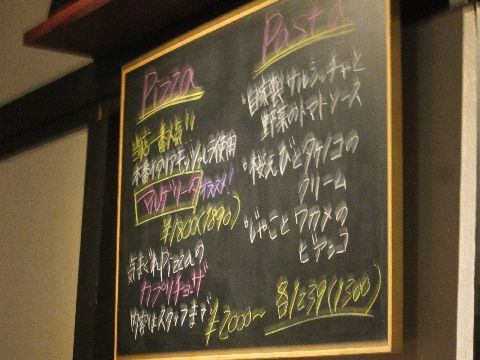 Pizza
当店一番人気!!
本番イタリアモッツァレラ使用
マルゲリータ オススメ!
¥1800(1890)
気まぐれPizzaの
カプリチョザ
内容はスタッフまで
¥2000〜
Pasta
・自家製サルシッチャと
野菜のトマトソース
・桜えびとタケノコの
クリーム
・じゃことワカメの
ビアンコ
各1239(1300)